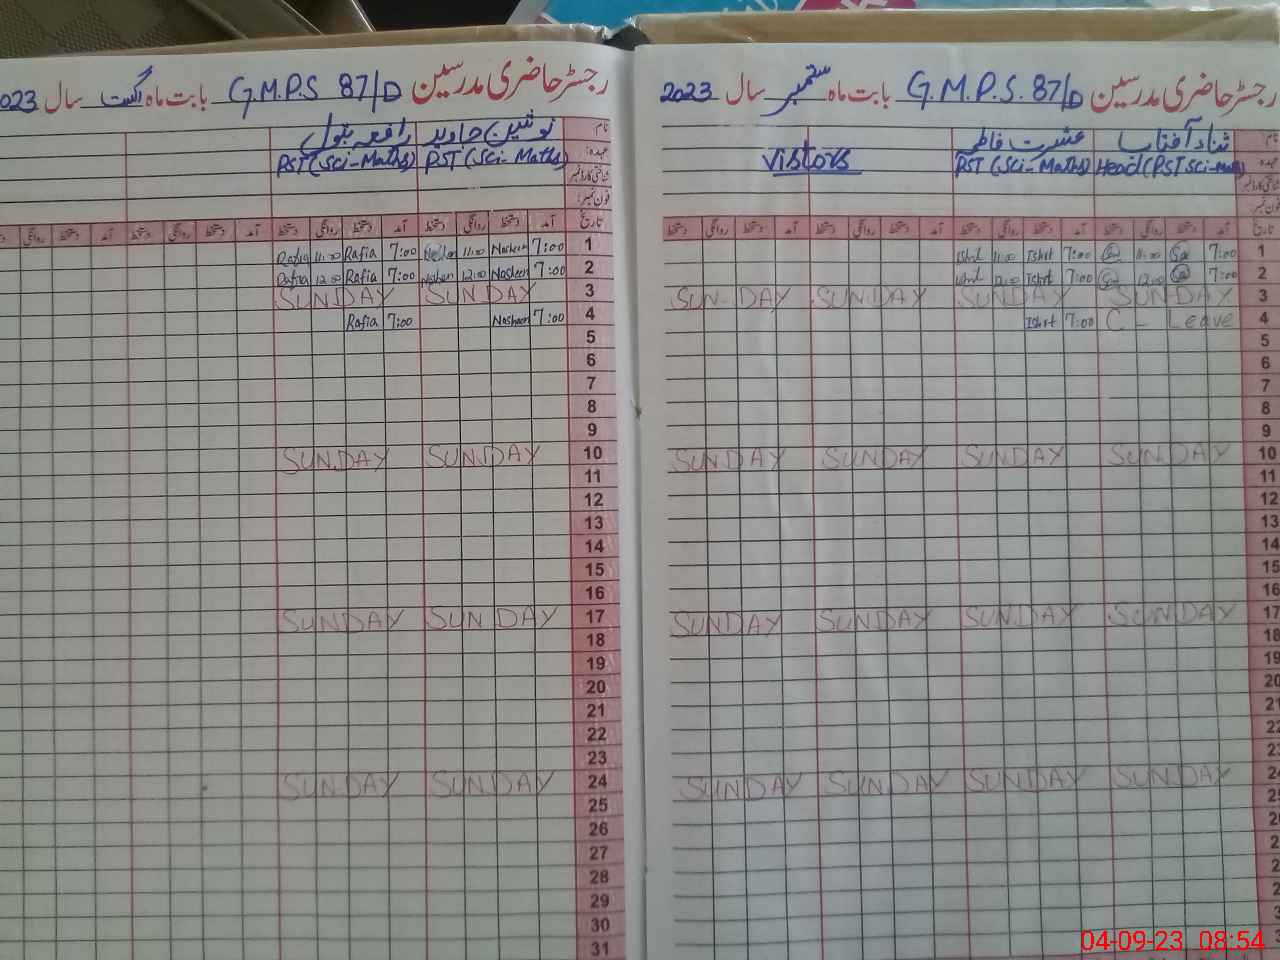 رجسٹر حاضری مدرسین G.M.P.S. 87/D بابت ماہ ستمبر سال 2023
نام ثناء آفتاب عشرت فاطمہ
عہدہ Head (PST Sci-Maths) PST (Sci-Maths) Vistors
شناختی کارڈ نمبر
فون نمبر
تاریخ آمد دستخط روانگی دستخط آمد دستخط روانگی دستخط آمد دستخط روانگی دستخط آمد دستخط روانگی دستخط
1 7:00 Sa 11:00 Sa 7:00 Ishrt 11:00 Ishrt
2 7:00 Sa 12:00 Sa 7:00 Ishrt 12:00 Ishrt
3 SUNDAY SUNDAY SUNDAY SUNDAY
4 C - Leave 7:00 Ishrt
5
6
7
8
9
10 SUNDAY SUNDAY SUNDAY SUNDAY
11
12
13
14
15
16
17 SUNDAY SUNDAY SUNDAY SUNDAY
18
19
20
21
22
23
24 SUNDAY SUNDAY SUNDAY SUNDAY
25
رجسٹر حاضری مدرسین G.M.P.S 87/D بابت ماہ اگست سال 2023
نام نوشین جاوید رافعہ بتول
عہدہ: PST (Sci-Maths) PST (Sci-Maths)
شناختی کارڈ نمبر
فون نمبر:
تاریخ آمد دستخط روانگی دستخط آمد دستخط روانگی دستخط آمد دستخط روانگی دستخط آمد دستخط روانگی دستخط
1 7:00 Nosheen 11:00 7:00 Rafia 11:00 Rafia
2 7:00 Nosheen 12:00 Nosheen 7:00 Rafia 12:00 Rafia
3 SUNDAY SUNDAY
4 7:00 Nosheen 7:00 Rafia
5
6
7
8
9
10 SUNDAY SUNDAY
11
12
13
14
15
16
17 SUNDAY SUNDAY
18
19
20
21
22
23
24 SUNDAY SUNDAY
25
26
27
28
29
30
31
04-09-23 08:54